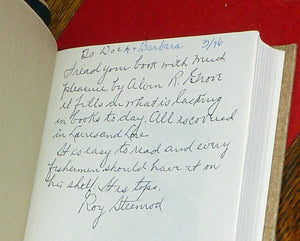 To Doc A + Barbara 9/96
I read your book with much
pleasure by Alvin R. Grove
it fills in what is lacking
in books to day. All is covered
in Lures and Lore.
It is easy to read and every
fisherman should have it on
his shelf. It is tops.
Roy Steenrod